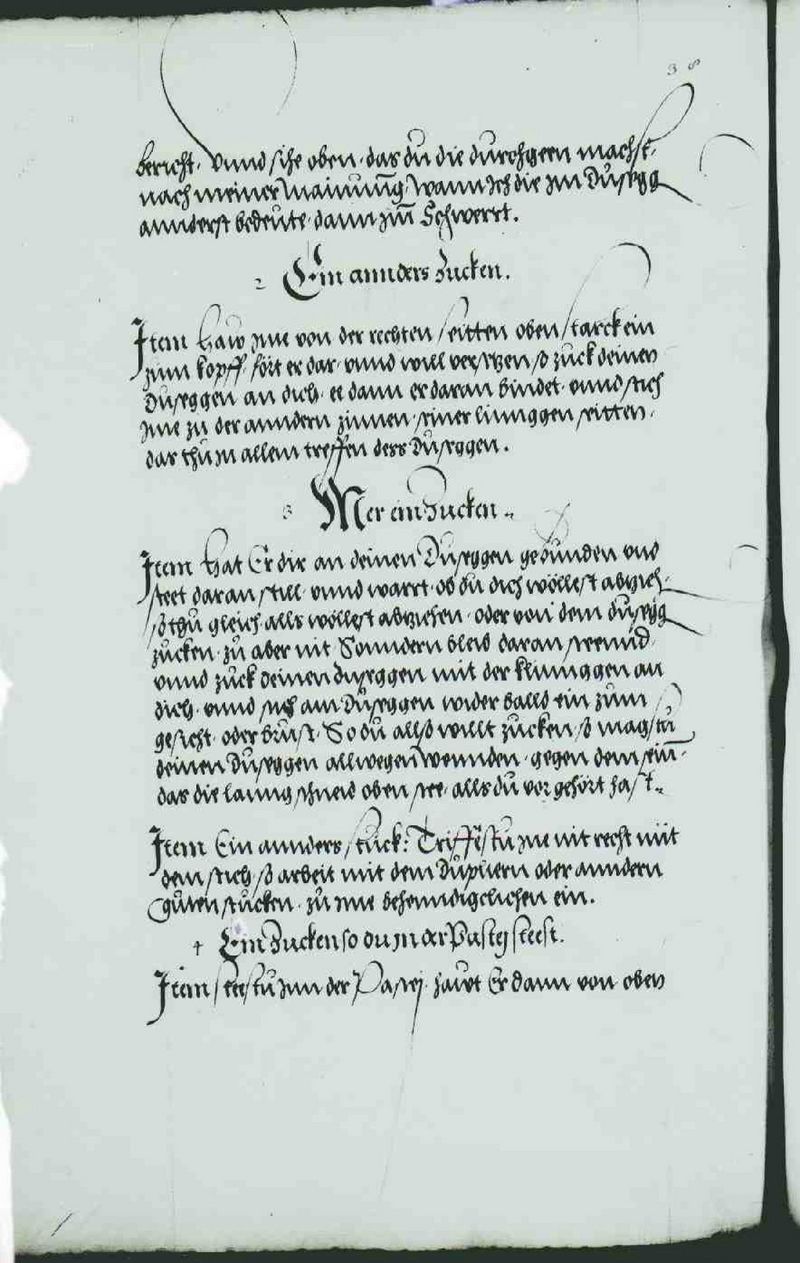 38
bericht. vnnd sihe oben. das du die durchgeen machst,
nach meiner mainung, wann Ich die im Dusegg
annderst bedeute. dann zum Schwerrt.
2 Ein annders Zucken.
Item haw ime von der rechten seitten oben starck ein
zum kopff. fört er dar. vnnd will versetzen so zuck deinen
Duseggen an dich. ee dann er daran bindet. vnnd stich
ime zu der anndern zinnen. seiner linnggen seitten.
das thu in allem treffen dess Duseggen.
3 Mer ein Zucken
Item hat Er dir an deinen Duseggen gebunden vnd
steet daran still. vnnd wartt. ob du dich wöllest abzieh.
so thu gleich alls wöllest abziehen. oder von dem dusegg
zucken. zu aber nit Sonndern bleib daran
vnnd zuck deinen duseggen mit der klinnggen an
dich. vnnd stich am Duseggen wider balld ein zum
gesicht. oder brust. So du allso willt zucken. so magstu
deinen Duseggen allwegen wennden. gegen dem sein.
das die lanng schneid oben stee. alls du vor gehört hast.
Item Ein annders stuck: Triffestu ime nit recht mit
dem stich. so arbeit mit dem Dupliern oder anndern
guten stucken. zu ime behenndigclichen ein.
4 Ein Zucken so du in der Pastey steest.
Item steestu inn der Pastej. hawt Er dann von oben